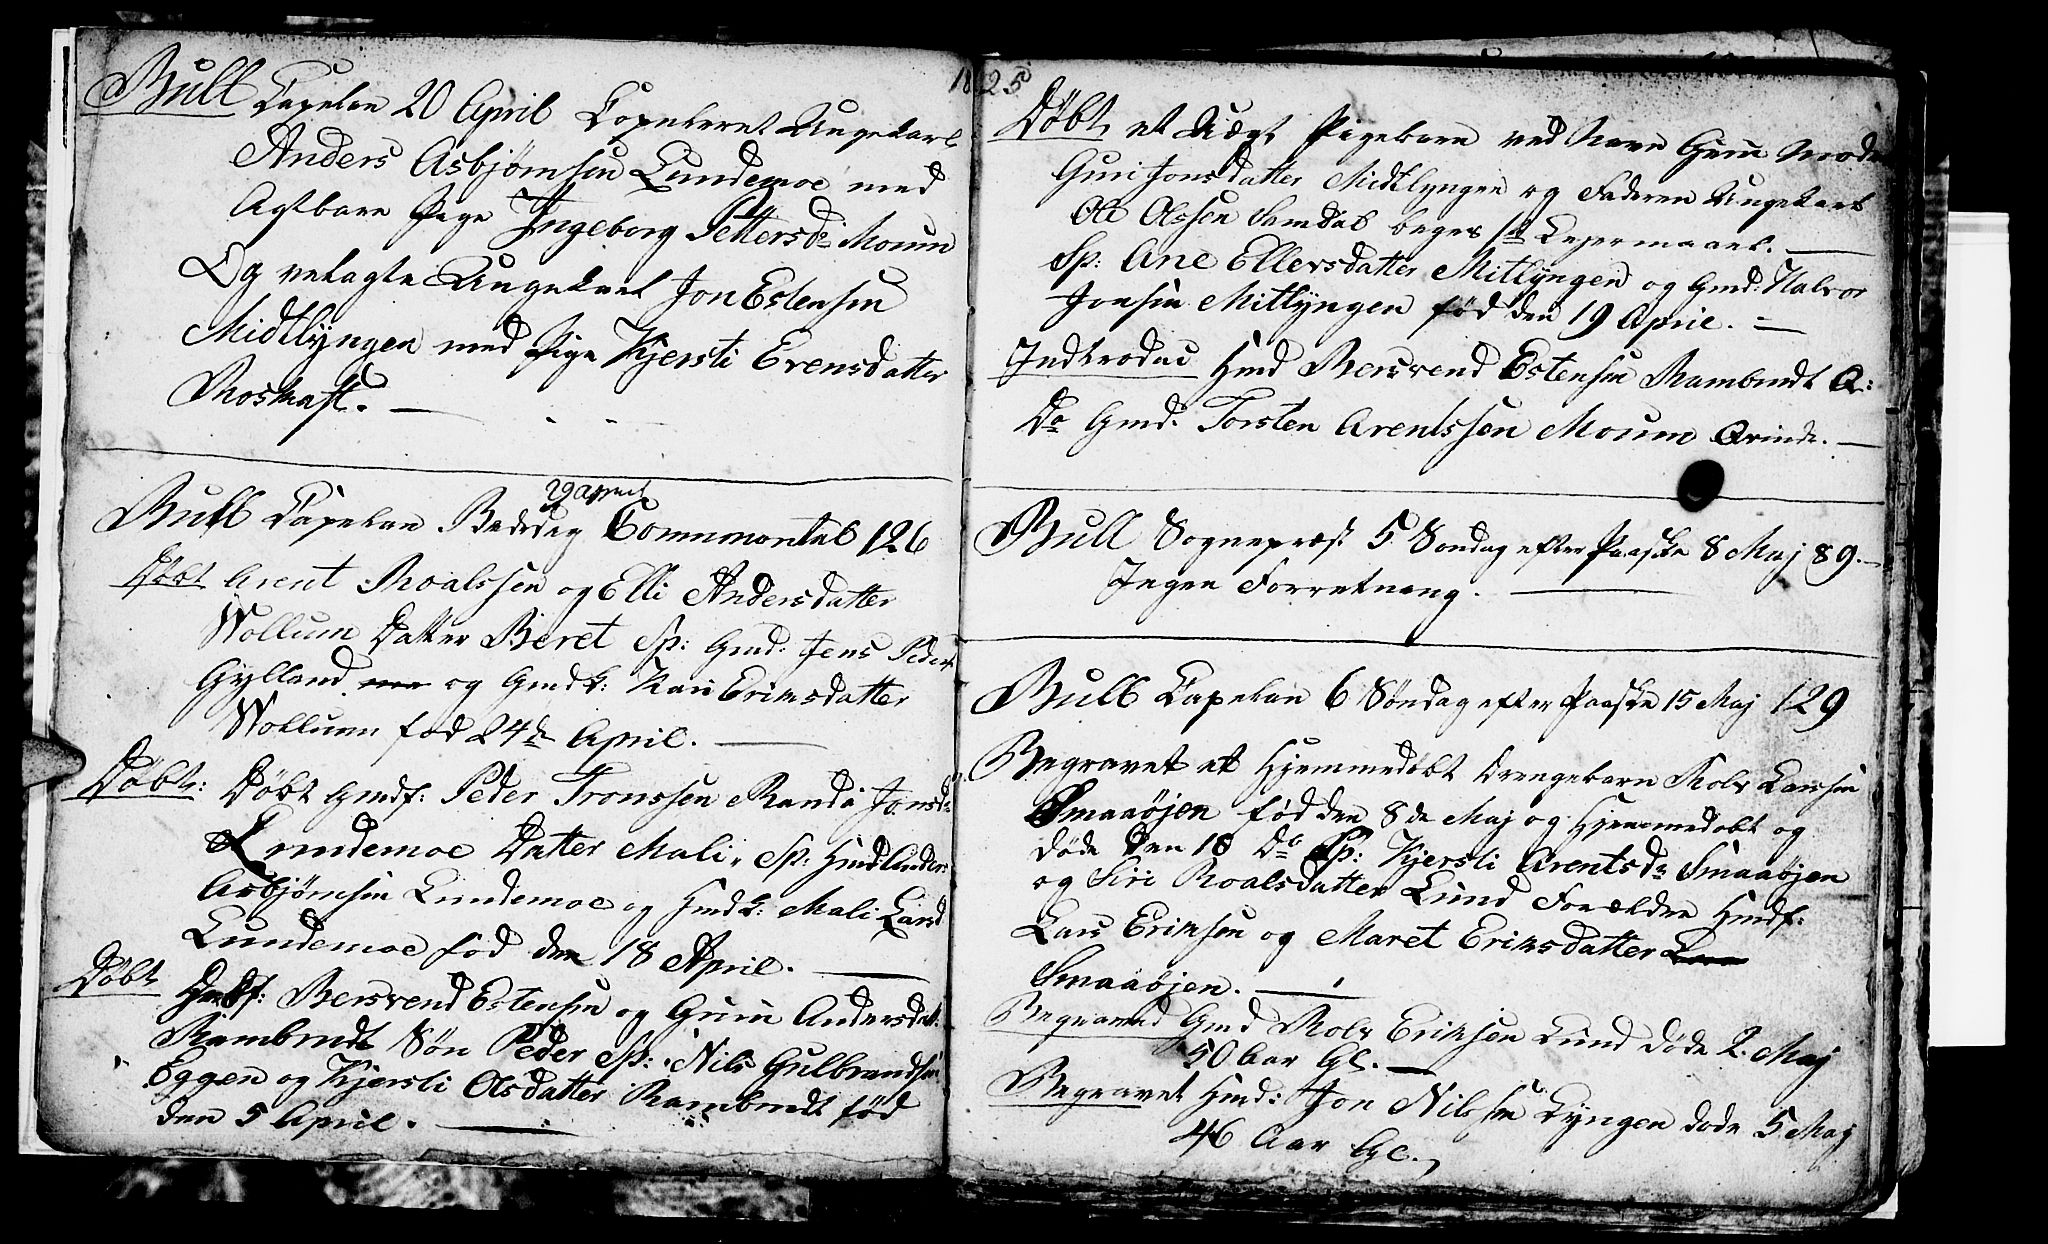 1825
Bull Capelan 20 April Copuleret Ungekarl
Anders Asbjørnsen Lundemoe med
Agtbare Pige Ingeborg Pettersd: Moum
Og velagte Ungekarl Jon Estensen
Midtlyngen med Pige Kjersti Evensdatter
Roskaft. —
29 April
Bull Capelan Bededag Communicantal 126
Døbt Arent Roalssen og Elli Andersdatter
Wollum Datter Beret Sp: Gmd: Jens Peders
Gylland og Gmdk: Kari Eriksdatter
Wollum fød 24de April. —
Døbt: Døbt Gmdf: Peder Tronssen Randi Jonsd:
Lundemoe Datter Mali, Sp: Hmd Anders
Asbjørnsen Lundemoe og Hmdk: Mali Larsd
Lundemoe fød den 18 April. —
Døbt Hmdf: Bersvend Estensen og Guru Andersdat:
Rambredt Søn Peder Sp: Nils Gulbrandsen
Eggen og Kjersti Olsdatter Rambredt fød
den 5 April. —
Døbt et Uægt Pigebarn ved Navn Guru Moder
Guri Jonsdatter Midtlyngen og Faderen Ungekarl
Ole Olssen Samdal beges 1ste Lejermaal. —
Sp: Ane Ellevsdatter Mitlyngen og Gmd: Halvor
Jonsen Mitlyngen fød den 19 April. —
Indtroduc Hmd Bersvend Estensen Rambredt Q:
Do Gmd: Torsten Arentssen Moum Qvinde. —
Bull Sognepræst 5 Søndag efter Paaske 8 Maj 89. —
Ingen Forretning. —
Bull Capelan 6 Søndag efter Paaske 15 Maj 129
Begravet et Hjemmedøbt Drengebarn Rolv Larssen
Smaaøjen fød den 8de Maj og Hjemmedøbt og
døde den 10 Do Sp: Kjersti Arentsd: Smaaøjen
og Siri Roalsdatter Lund Forældre Hmdf:
Lars Eriksen og Maret Eriksdatter
Smaaøjen. —
Begraved Gmd Rolv Eriksen Lund døde 2. Maj
50 Aar Gl. —
Begravet Hmd: Jon Nilssen Lyngen døde 5 Maj
46 Aar Gl.